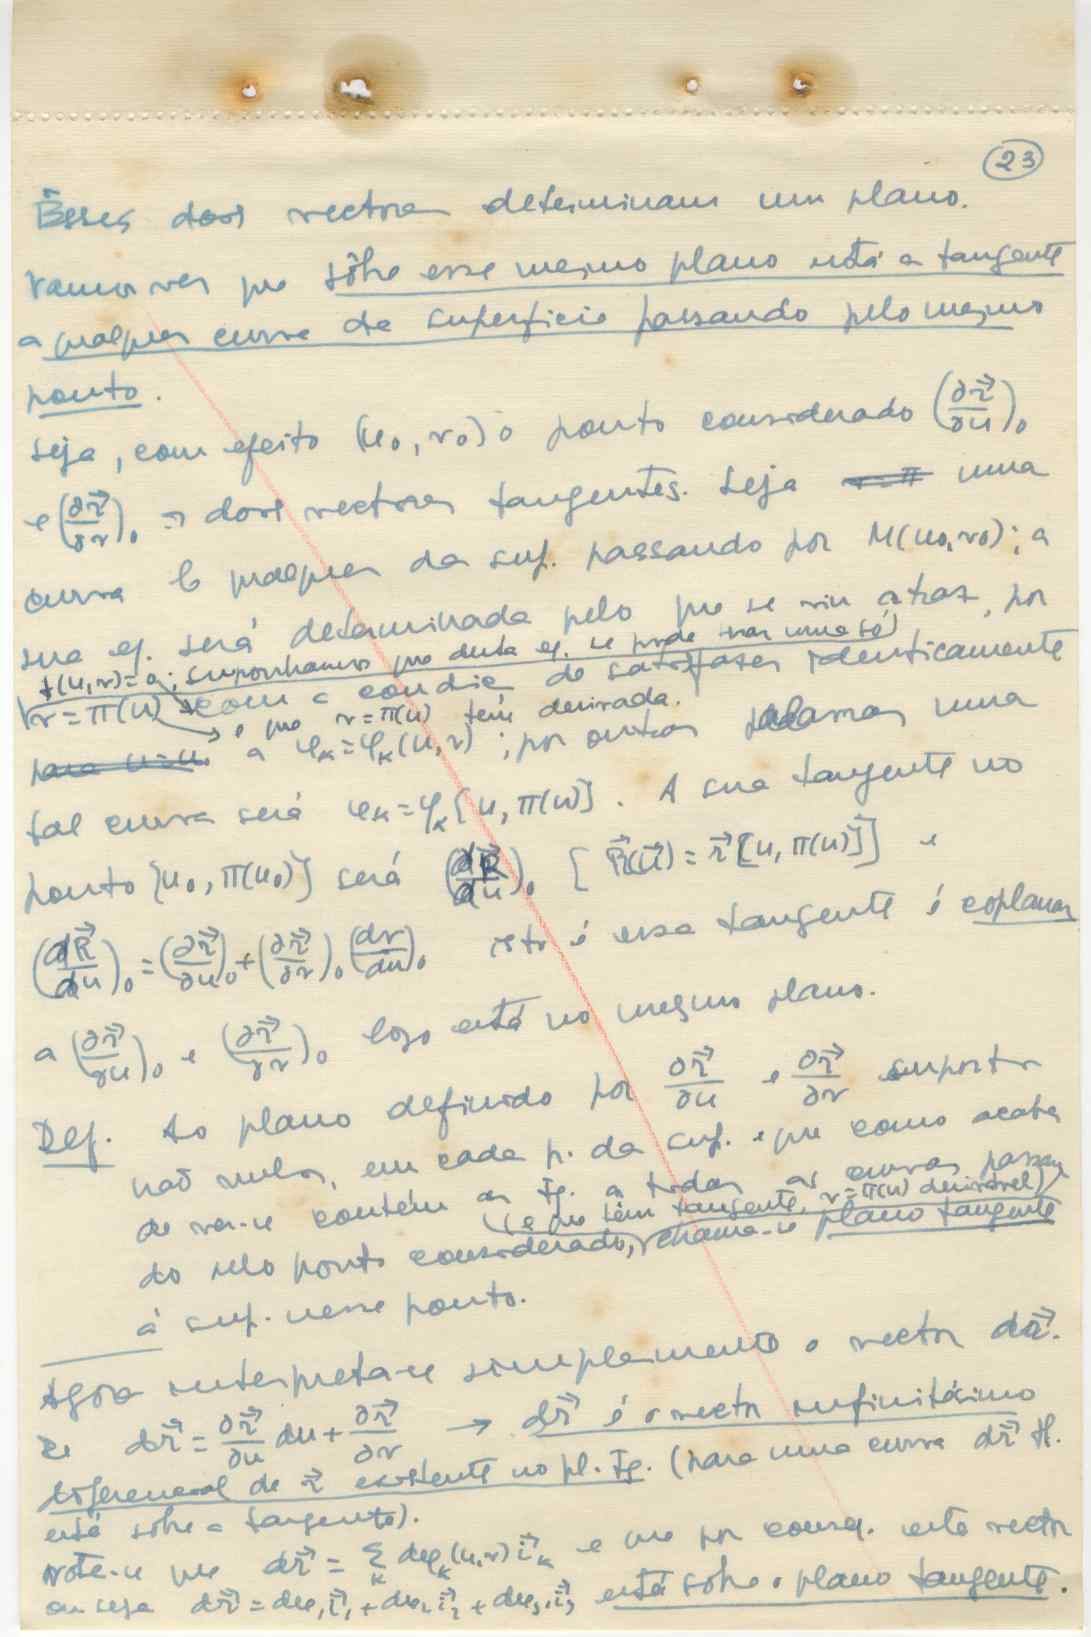 23
Êsses dois vectores determinam um plano.
Vamos ver que sôbre esse mesmo plano está a tangente
a qualquer curva da superficie passando pelo mesmo
ponto.
Seja, com efeito (u₀, v₀) o ponto considerado (∂r⃗/∂u)₀
e (∂r⃗/∂v)₀ os dois vectores tangentes. Seja uma
curva C qualquer da sup. passando por M(u₀,v₀); a
sua eq. será determinada pelo que se viu atraz, por
f(u,v)=0; suponhamos que desta eq. se pode tirar uma só
v = π(u) com a condiç. de satisfazer identicamente
e que v=π(u) tem derivada.
para u=u₀ a φₖ=φₖ(u,v); por outras palavras uma
tal curva será φₖ=φₖ[u, π(u)]. A sua tangente no
ponto [u₀, π(u₀)] será (dR⃗/du)₀ [R⃗(u)=r⃗[u, π(u)]] e
(dR⃗/du)₀=(∂r⃗/∂u)₀+(∂r⃗/∂v)₀(dv/du)₀ isto é essa tangente é coplanar
a (∂r⃗/∂u)₀ e (∂r⃗/∂v)₀ logo está no mesmo plano.
Def. Ao plano definido por ∂r⃗/∂u e ∂r⃗/∂v supostos
não nulos, em cada p. da sup. e que como acaba
de ver-se contém as tg. a todas as curvas passan
(e que têm tangente, v=π(u) derivável)
do pelo ponto considerado, chama-se plano tangente
á sup. nesse ponto.
Agora interpreta-se simplesmente o vector dr⃗.
Se dr⃗ = ∂r⃗/∂u du + ∂r⃗/∂v → dr⃗ é o vector infinitésimo
diferencial de r⃗ existente no pl. tg. (para uma curva dr⃗
está sôbre a tangente).
Note-se que dr⃗ = Σₖ dφₖ(u,v) i⃗ₖ e que por conseq. este vector
ou seja dr⃗ = dφ₁i⃗₁ + dφ₂i⃗₂ + dφ₃i⃗₃ está sôbre o plano tangente.